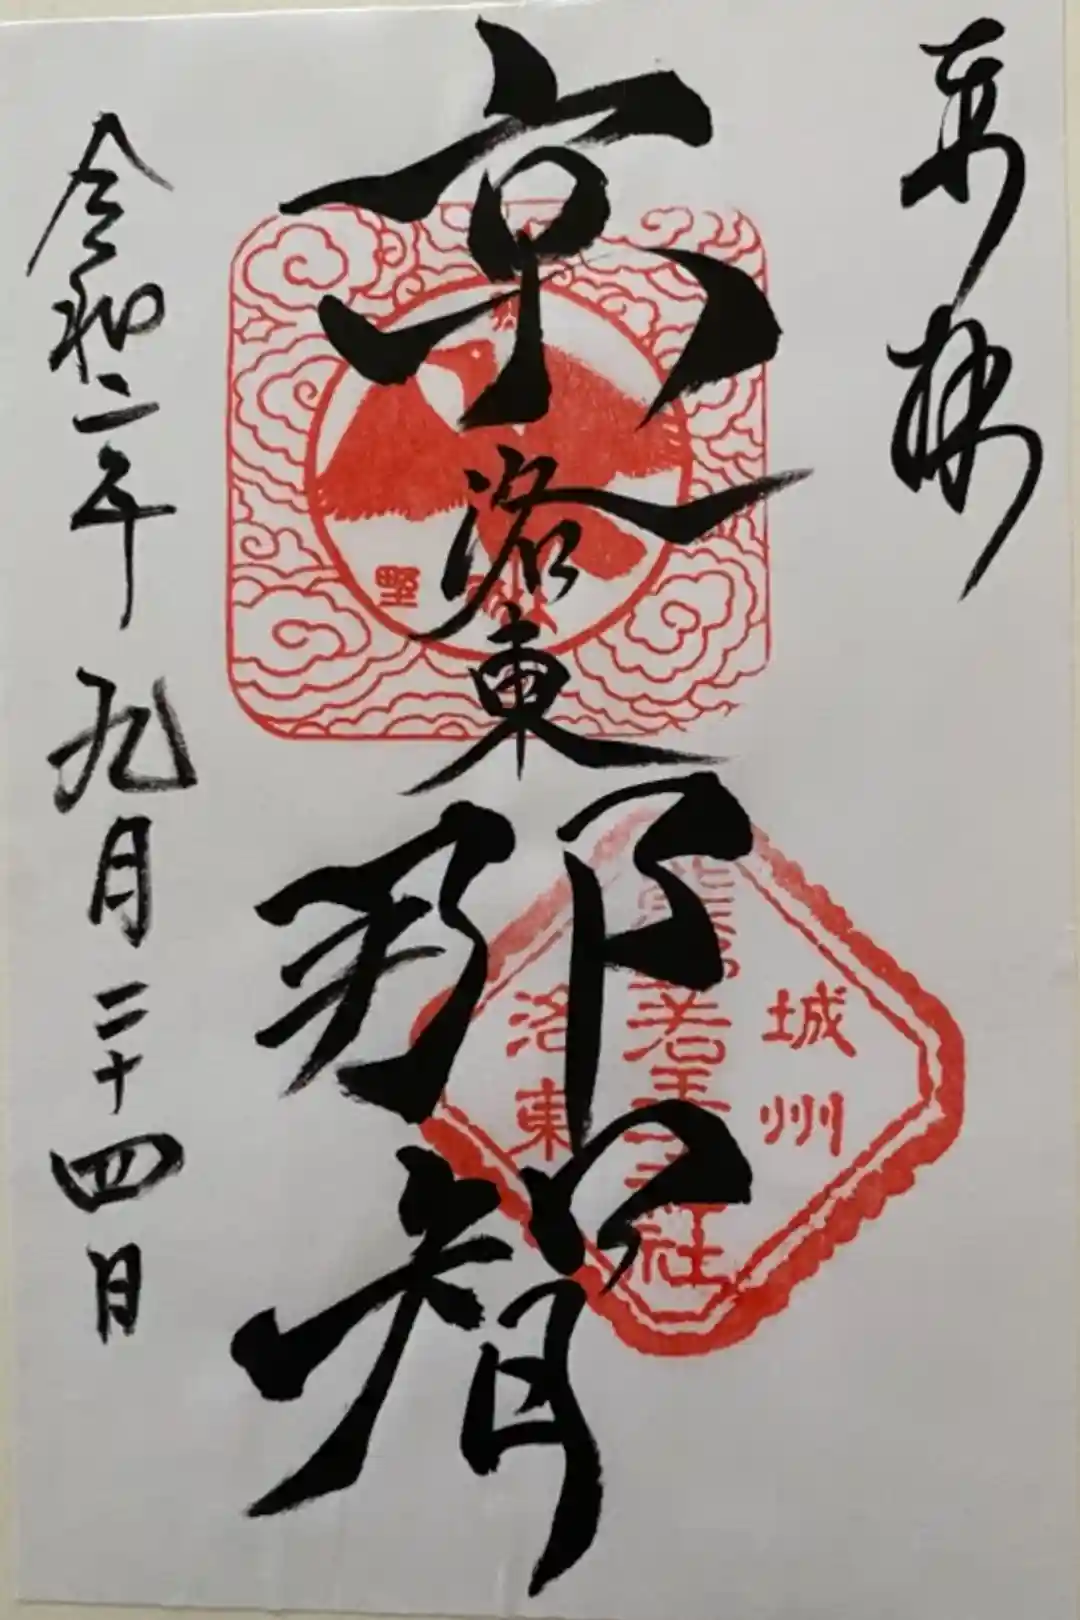 奉拝
京洛東那智
城州
若王子社
洛東
令和二年九月二十四日